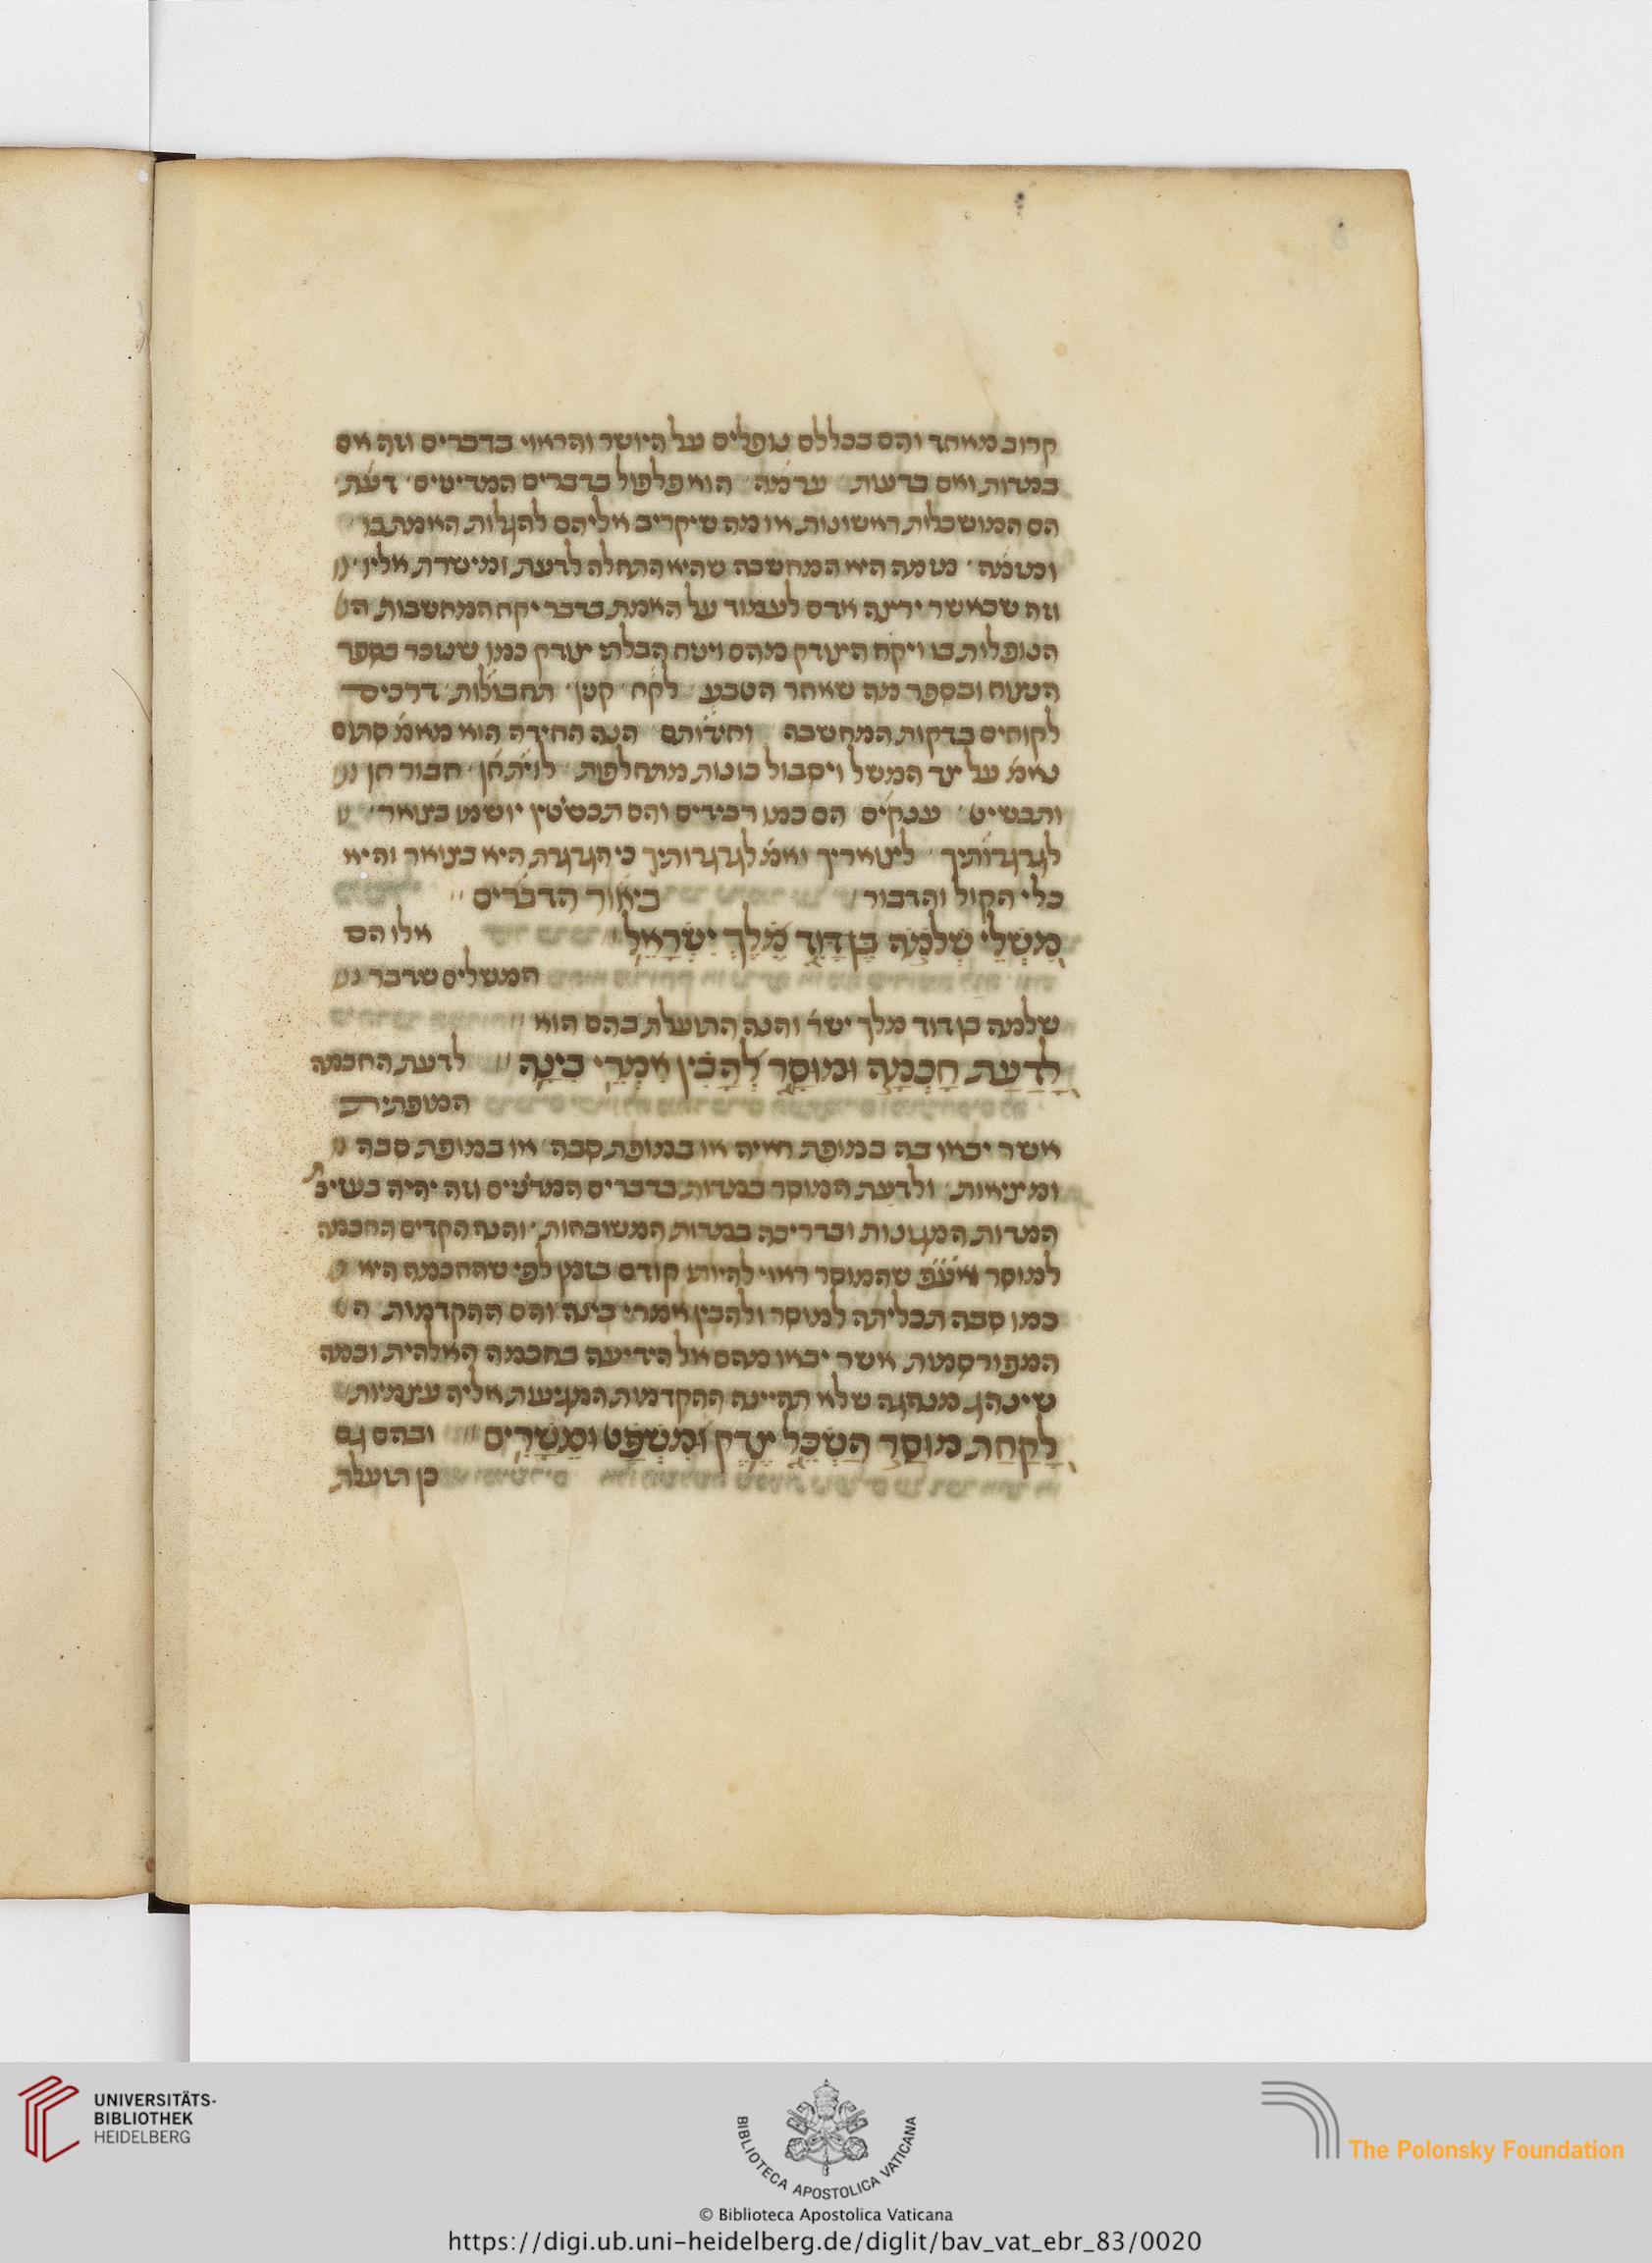 קרוב מאחד והם בכללם נופלים על היושר והראוי בדברים וזה אם
במדות ואם בדעות ערמה הוא פלפול בדברים המדיניים דעת
הם המושכלות ראשונות או מה שיקריב אליהם להגלות האמת בו
ומזמה מזמה היא המחשבה שהיא התחלה לדעת ומישרת אליו
וזה שכאשר ירצה אדם לעמוד על האמת בדבר יקח המחשבות
הנופלות בו ויקח הצודק מהם ויניח הבלתי צודק כמו שנזכר בספר
הנצוח ובספר מה שאחר הטבע לקח קנין תחבולות דרכים
לקוחים בדקות המחשבה וחידותם הנה החידה הוא מאמ׳ סתום
נאמ׳ על צד המשל ויסבול כונות מתחלפות לוית חן חבור חן
ותכשיט ענקים הם כמו רבידים והם תכשיטין יושמו בצואר
לגרגרותיך לצואריך ואמ׳ לגרגרותיך כי הגרגרת היא בצואר והיא
כלי הקול והדבור ביאור הדברים
מִשְׁלֵי שְׁלֹמֹה בֶן דָּוִד מֶלֶךְ יִשְׂרָאֵל אלו הם
המשלים שדבר
שלמה בן דוד מלך ישר׳ והנה התועלת בהם הוא
לָדַעַת חָכְמָה וּמוּסָר לְהָבִין אִמְרֵי בִינָה לדעת החכמה
המופתית
אשר יבאו בה במופת ראיה או במופת סבה או במופת סבה
ומציאות ולדעת המוסר במדות בדברים המדיניים וזה יהיה בעזיבת
המדות המגונות ובדריכה במדות המשובחות והנה הקדים החכמה
למוסר אע״פ שהמוסר ראוי להיות קודם בזמן לפי שהחכמה היא
כמו סבה תכליתה למוסר ולהבין אמרי בינה והם ההקדמות
המפורסמות אשר יבאו מהם אל הידיעה בחכמה האלהית ובמה
שינהג מנהגה שלא תהיינה ההקדמות המגיעות אליה עצמיות
לָקַחַת מוּסַר הַשְׂכֵּל צֶדֶק וּמִשְׁפָּט וּמֵשָׁרִים ובהם גם
כן תועלת
UNIVERSITÄTS-
BIBLIOTHEK
HEIDELBERG
BIBLIOTECA APOSTOLICA VATICANA
The Polonsky Foundation
© Biblioteca Apostolica Vaticana
https://digi.ub.uni-heidelberg.de/diglit/bav_vat_ebr_83/0020